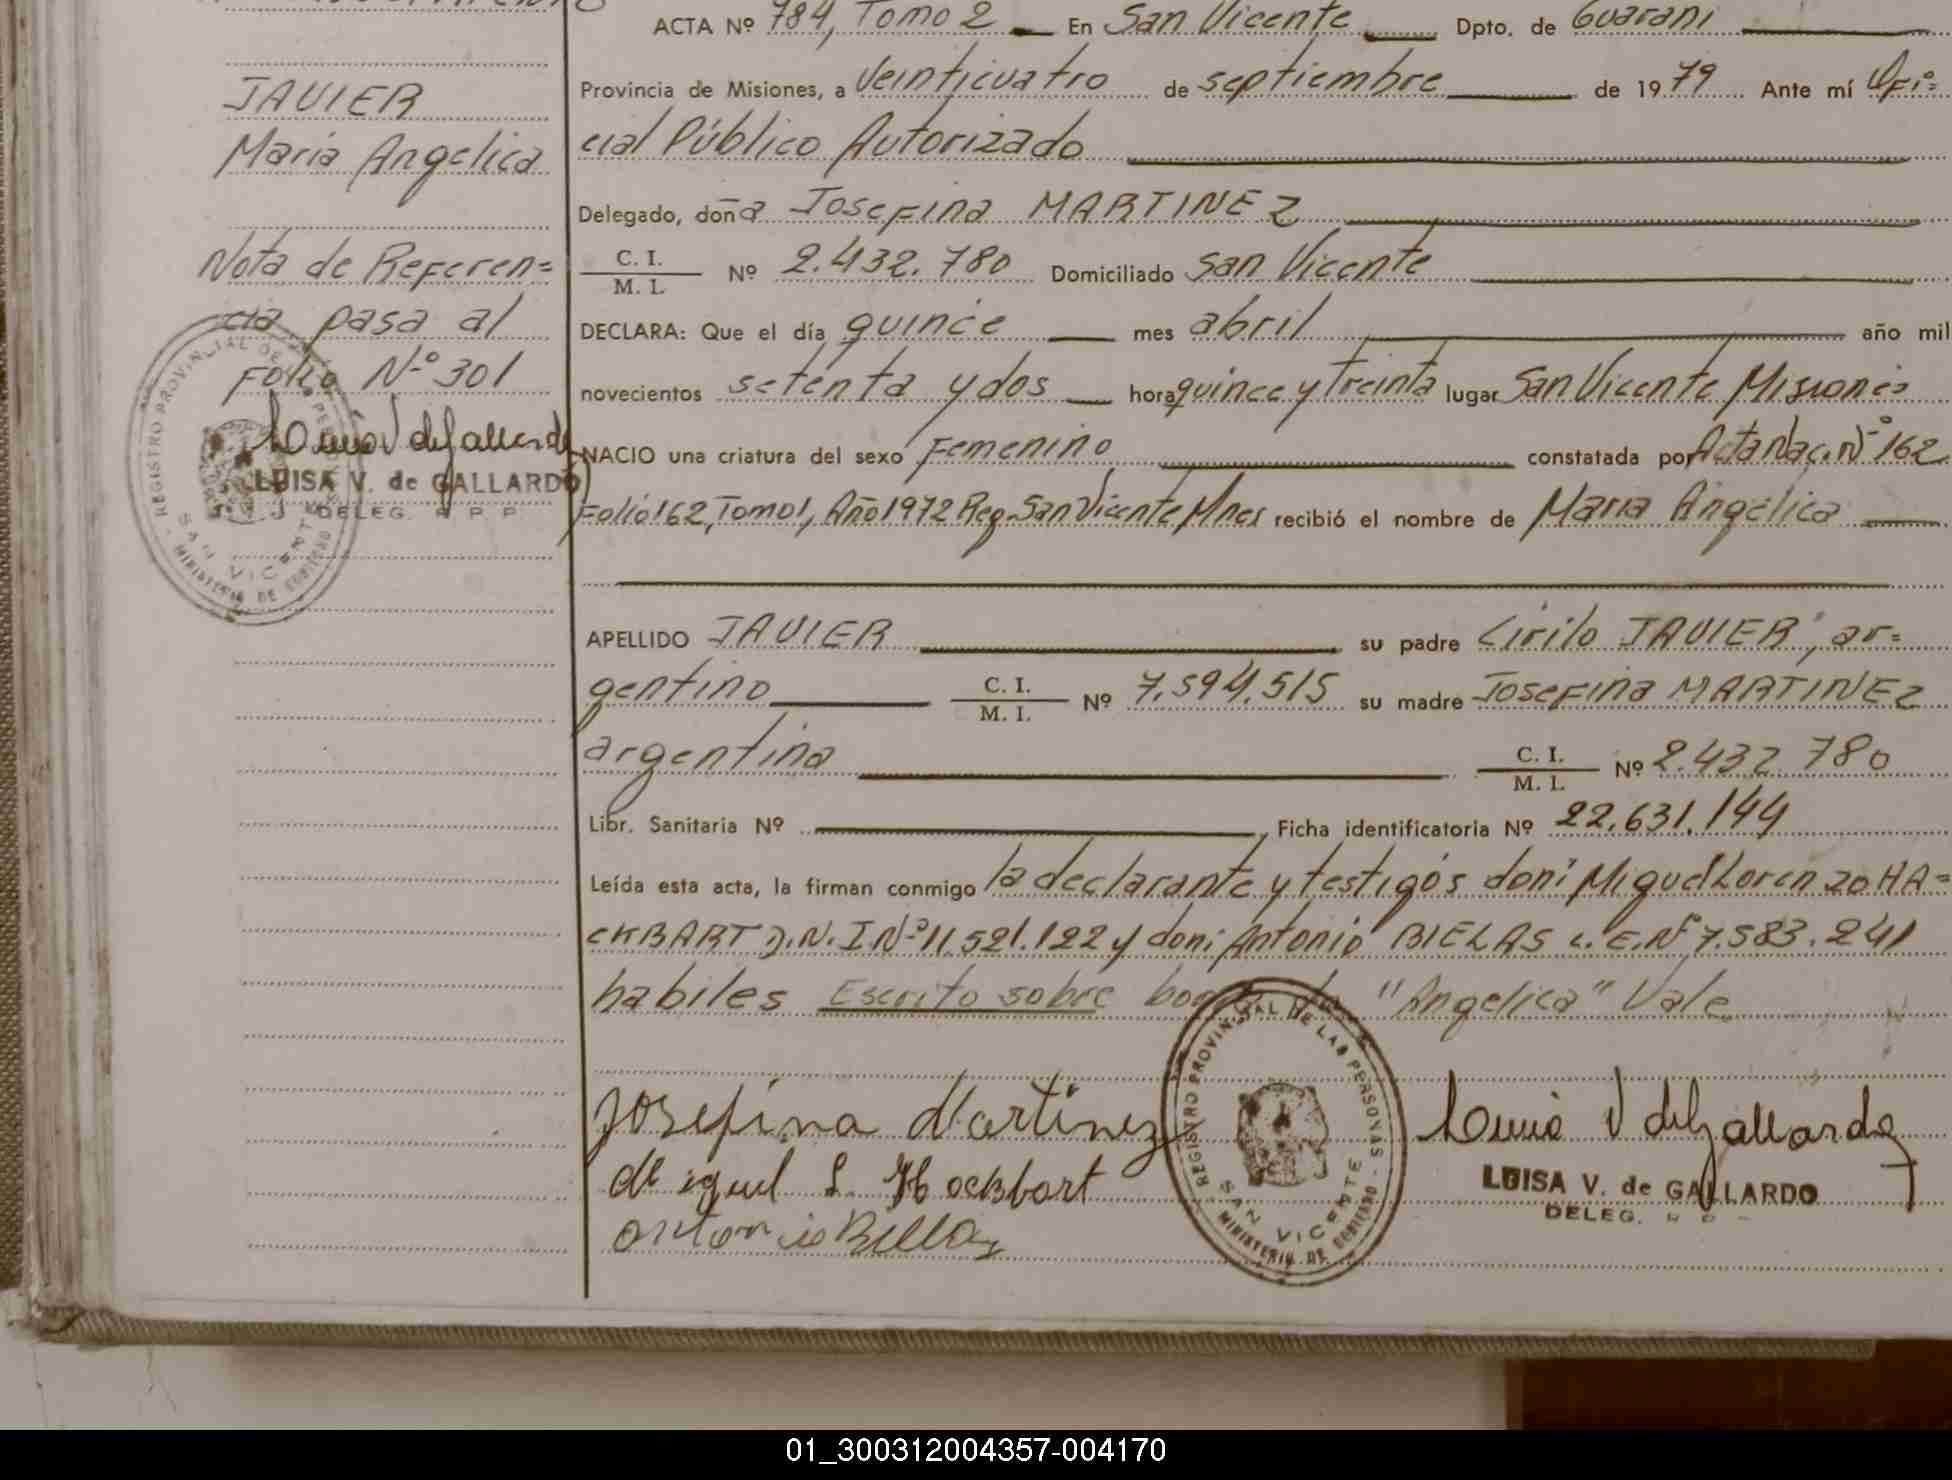 JAVIER
María Angelica
Nota de Referen=
cia pasa al
Folio Nº 301
LUISA V. de GALLARDO
DELEG. R. P. P.
REGISTRO PROVINCIAL DE LAS PERSONAS
SAN VICENTE
MINISTERIO DE GOBIERNO
ACTA Nº 784, Tomo 2 En San Vicente Dpto. de Guaraní
Provincia de Misiones, a Veinticuatro de septiembre de 1979 Ante mí Ofi=
cial Público Autorizado
Delegado, doña Josefina MARTINEZ
C. I.
M. I. Nº 2.432.780 Domiciliado San Vicente
DECLARA: Que el día quince mes abril año mil
novecientos setenta y dos hora quince y treinta lugar San Vicente Misiones
NACIO una criatura del sexo Femenino constatada por Acta Nac. Nº 162
Folio 162, Tomo 1, Año 1972 Reg. San Vicente Mnes recibió el nombre de María Angélica
APELLIDO JAVIER su padre Cirilo JAVIER, ar=
gentino C. I.
M. I. Nº 7.594.515 su madre Josefina MARTINEZ
argentina C. I.
M. I. Nº 2.432.780
Libr. Sanitaria Nº Ficha identificatoria Nº 22.631.144
Leída esta acta, la firman conmigo la declarante y testigos don: Miguel Lorenzo HA=
CKBART D.N.I Nº 11.521.122 y don: Antonio BIELAS L.E. Nº 7.583.241
habiles Escrito sobre "Angelica" Vale
Josefina Martinez
Miguel L. Hackbart
Antonio Bielas
REGISTRO PROVINCIAL DE LAS PERSONAS
SAN VICENTE
MINISTERIO DE GOBIERNO
Luisa V de Gallardo
LUISA V. de GALLARDO
DELEG.
01_300312004357-004170